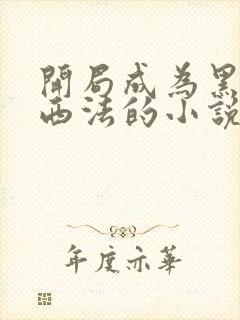 開局成為黑
西法的小說
年度亦華